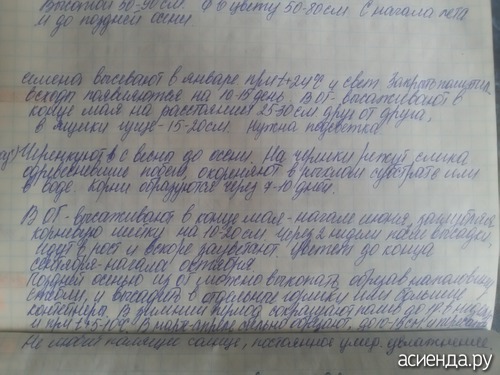 высотой 50-90см. ф цвету 50-80см. С начала лета
и до поздней осени
семена высевают в январе при t+24°C и свет. Закрыть
всходы появляются на 10-15 день. В ОГ- высаживают в
конце мая на расстоянии 25-30см друг от друга,
в ящики гуще -15-20см. Нужна подсветка.
Черенкуют в с весны до осени. На черенки режут слегка
одревесневшие побеги, укореняют в рыхлом субстрате или
в воде. Корни образуются через 7-10 дней.
В ОГ- высаживают в конце мая - начале июня,
корневую шейку на 10-20см через 2 недели после высадки
идет в рост и вскоре зацветает. Цветет до конца
сентября-начала октября
Поздней осенью из ОГ можно выкопать, обрезав наполовину
стебли, и высадив в отдельные горшки или большие
контейнера. В зимний период сокращают полив до 1
и при t +5-10°C. В март-апреле сильно обрезают, до 10-15см и
Не любит палящее солнце, постоянное умер. увлажнение,
асиенда.ру